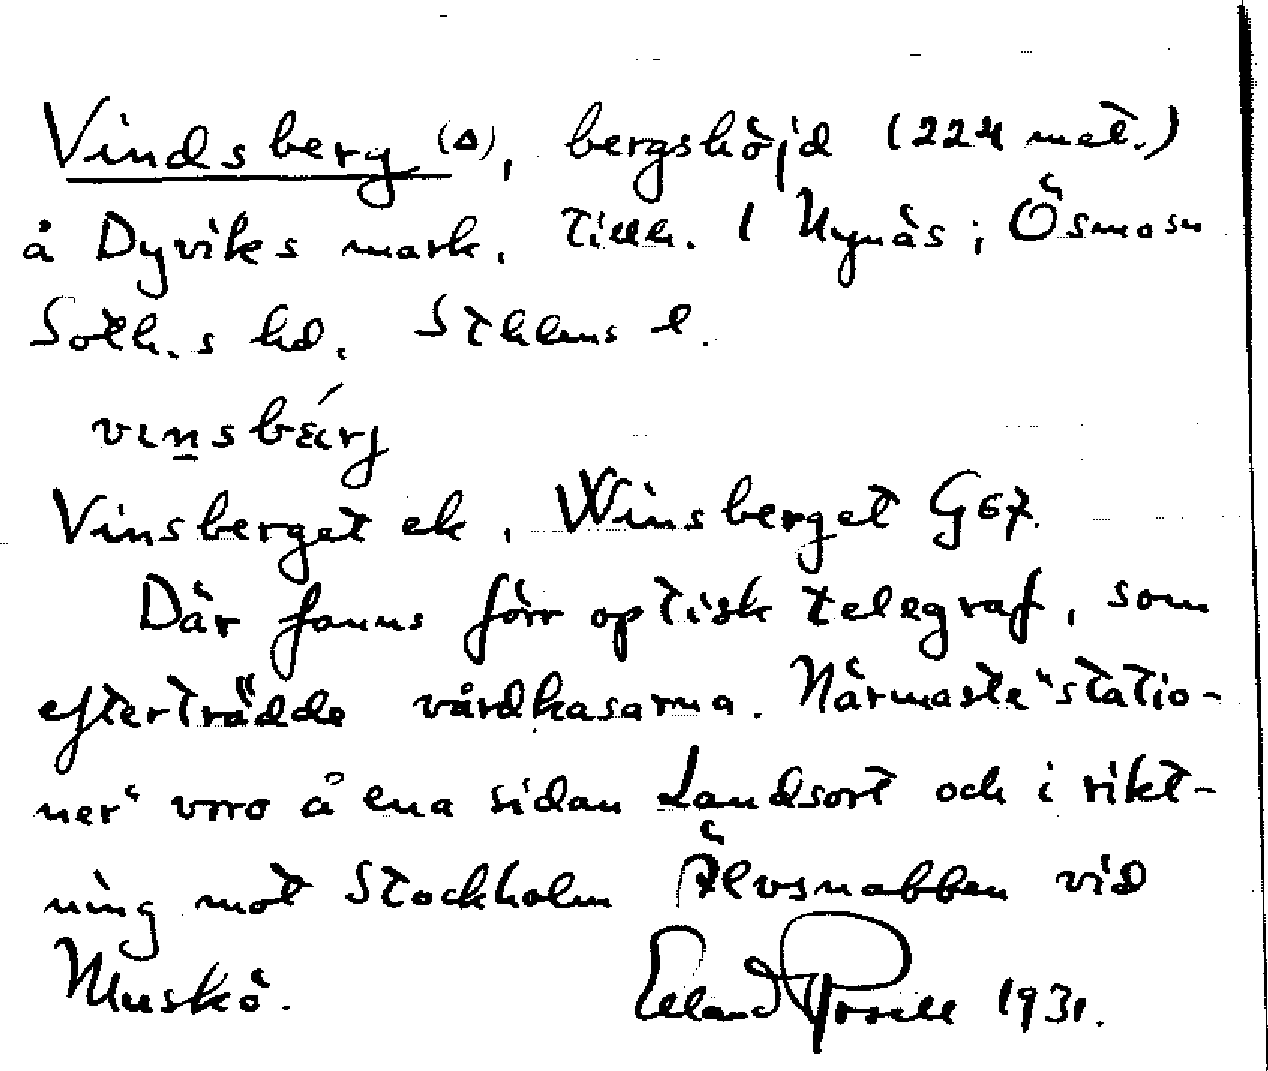 Vindsberg (Δ), bergshöjd (224 met.)
å Dyviks mark. Tillh. 1 Nynäs i Ösmo sn
Soth.s hd. Sthlms l.
vinsbärj
Vinsberget ek. Winsberget G67.
Där fanns förr optisk telegraf, som
efterträdde vårdkasarna. Närmaste "statio-
ner" voro å ena sidan Landsort och i rikt-
ning mot Stockholm Älvsnabben vid
Muskö. Erland 1931.